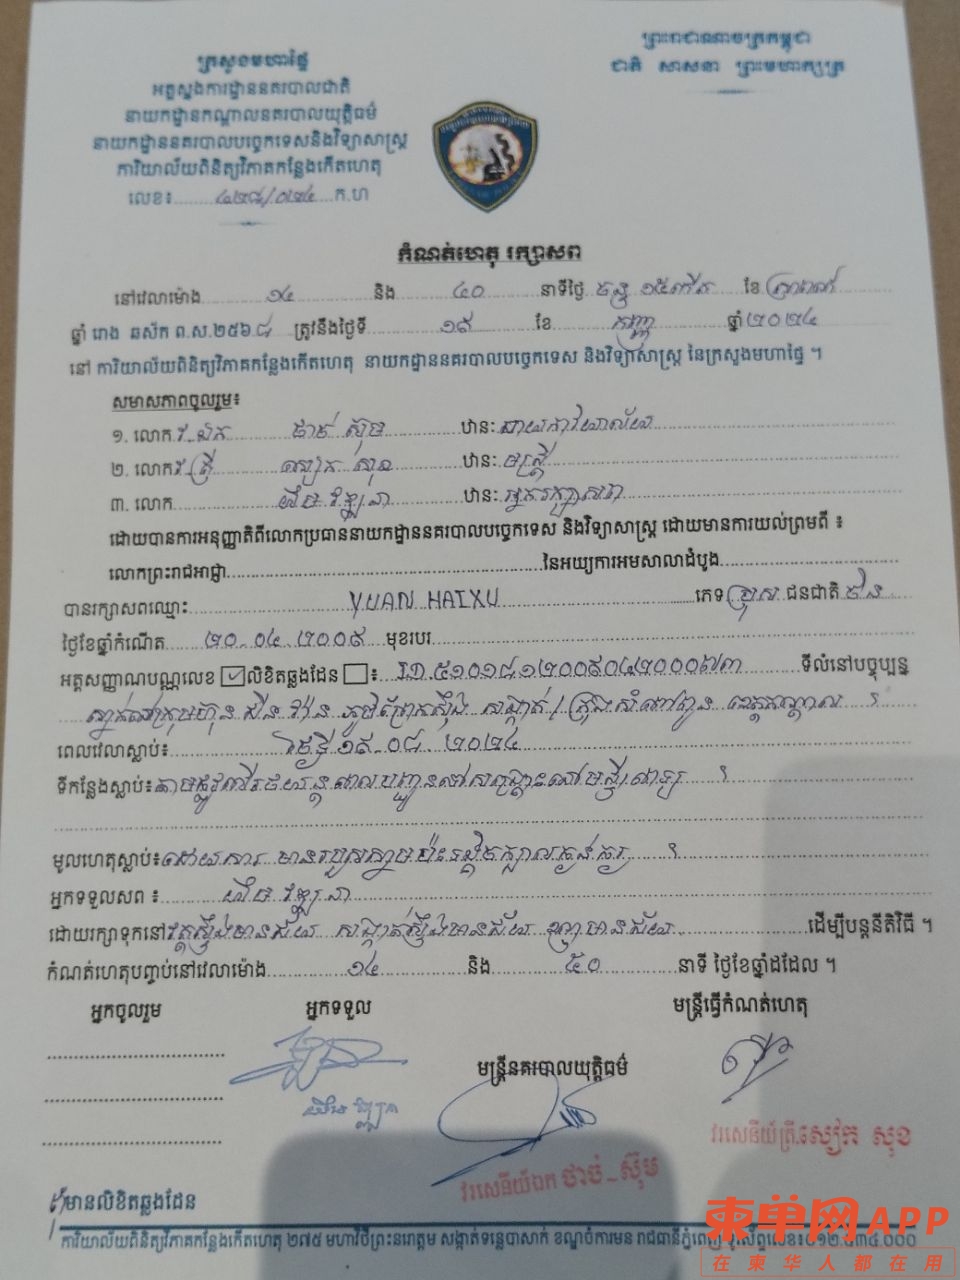 ព្រះរាជាណាចក្រកម្ពុជា
ជាតិ សាសនា ព្រះមហាក្សត្រ
ក្រសួងមហាផ្ទៃ
អគ្គស្នងការដ្ឋាននគរបាលជាតិ
នាយកដ្ឋានកណ្តាលនគរបាលយុត្តិធម៌
នាយកដ្ឋាននគរបាលបច្ចេកទេសនិងវិទ្យាសាស្ត្រ
ការិយាល័យពិនិត្យវិភាគកន្លែងកើតហេតុ
លេខ៖ ៤២៨/០២៤ ក.ហ
កំណត់ហេតុ រក្សាសព
នៅវេលាម៉ោង ១៤ និង ៤០ នាទីថ្ងៃ ចន្ទ ១៥កើត ខែ ស្រាពណ៍
ឆ្នាំ រោង ឆស័ក ព.ស.២៥៦៨ ត្រូវនឹងថ្ងៃទី ១៩ ខែ កញ្ញា ឆ្នាំ ២០២៤
នៅ ការិយាល័យពិនិត្យវិភាគកន្លែងកើតហេតុ នាយកដ្ឋាននគរបាលបច្ចេកទេស និងវិទ្យាសាស្ត្រ នៃក្រសួងមហាផ្ទៃ ។
សមាសភាពចូលរួម៖
១. លោក វ.ឯក ថាច់ ស៊ុម ឋានៈ នាយការិយាល័យ
២. លោក វ.ត្រី សៀក សុខ ឋានៈ មន្ត្រី
៣. លោក ឋានៈ អ្នករក្សាសព
ដោយបានការអនុញ្ញាតិពីលោកប្រធាននាយកដ្ឋាននគរបាលបច្ចេកទេស និងវិទ្យាសាស្ត្រ ដោយមានការយល់ព្រមពី ៖
លោកព្រះរាជអាជ្ញា នៃអយ្យការអមសាលាដំបូង
បានរក្សាសពឈ្មោះ YUAN HAIXU ភេទ ប្រុស ជនជាតិ ចិន
ថ្ងៃខែឆ្នាំកំណើត ២០.០៤.២០០៩ មុខរបរ
អត្តសញ្ញាណបណ្ណលេខ លិខិតឆ្លងដែន ៖ I.D.៥១០១៨១២០០៩០៤២០០០៧៣ ទីលំនៅបច្ចុប្បន្ន
ស្នាក់នៅក្រុមហ៊ុន ភូមិព្រែកស្ទឹង សង្កាត់/ក្រុងសំពៅពូន ខេត្តកណ្តាល ។
ពេលវេលាស្លាប់៖ ថ្ងៃទី ១៩.០៨.២០២៤
ទីកន្លែងស្លាប់៖ តាមផ្លូវ
មូលហេតុស្លាប់៖ ដោយសារ មានរបួសស្នាម ក្បាលធ្ងន់ធ្ងរ ។
អ្នកទទួលសព ៖
ដោយរក្សាទុកនៅ វត្តស្ទឹងមានជ័យ សង្កាត់ស្ទឹងមានជ័យ ខណ្ឌមានជ័យ ដើម្បីបន្តនីតិវិធី ។
កំណត់ហេតុបញ្ចប់នៅវេលាម៉ោង ១៤ និង ៥០ នាទី ថ្ងៃខែឆ្នាំដដែល ។
អ្នកចូលរួម អ្នកទទួល មន្ត្រីធ្វើកំណត់ហេតុ
មន្ត្រីនគរបាលយុត្តិធម៌
វរសេនីយ៍ត្រី សៀក សុខ
វរសេនីយ៍ឯក ថាច់ ស៊ុម
មានលិខិតឆ្លងដែន
ការិយាល័យពិនិត្យវិភាគកន្លែងកើតហេតុ ២៧៥ មហាវិថីព្រះនរោត្តម សង្កាត់ទន្លេបាសាក់ ខណ្ឌចំការមន រាជធានីភ្នំពេញ
柬单网APP
在柬华人都在用